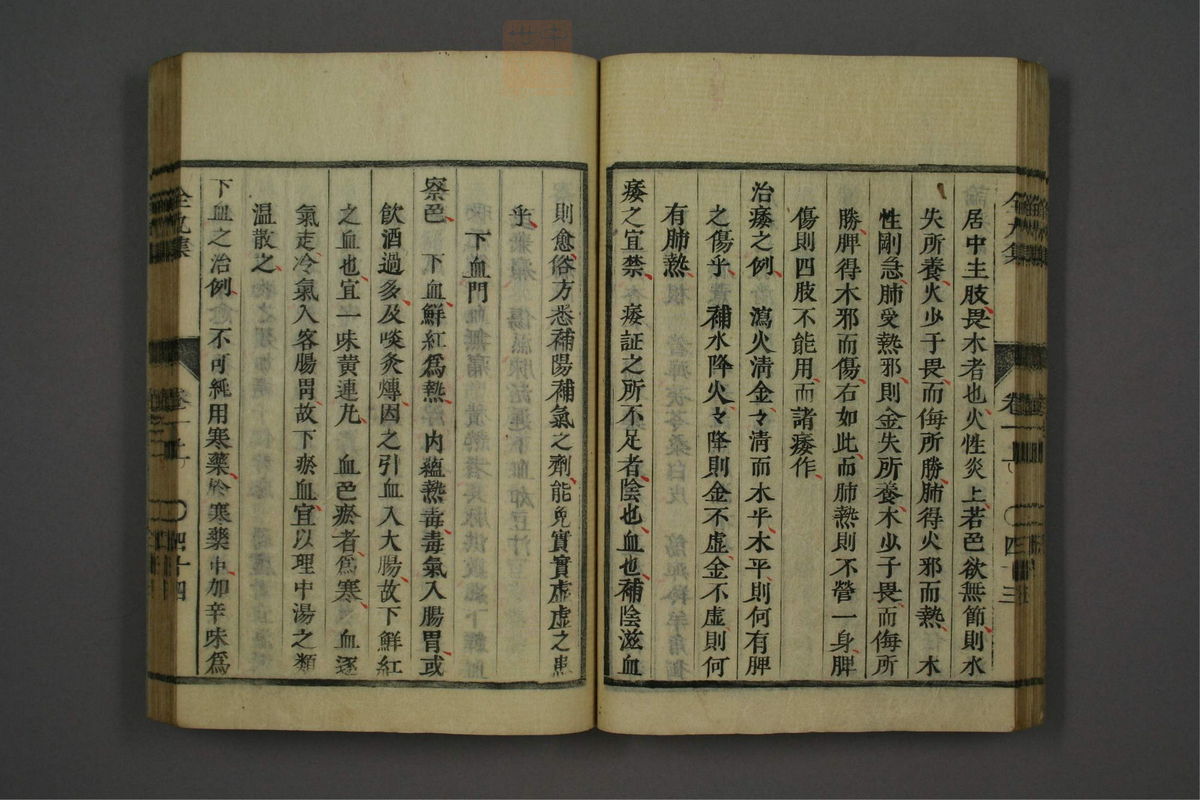 居中主肢畏木者也火性炎上若色欲無節則水
失所養火少于畏而侮所勝肺得火邪而熱　木
性剛急肺受熱邪則金失所養木少于畏而侮所
勝脾得木邪而傷右如此而肺熱則不營一身脾
傷則四肢不能用而諸痿作
治痿之例　瀉火淸金々淸而木平木平則何有脾
之傷乎　補水降火々降則金不虛金不虛則何
有肺熱
痿之宜禁　痿証之所不足者陰也血也補陰滋血
則愈俗方悉補陽補氣之劑能免實實虛虛之患
乎
下血門
察色　下血鮮紅爲熱　內蘊熱毒毒氣入腸胃或
飲酒過多及啖炙煿因之引血入大腸故下鮮紅
之血也宜一味黃連丸　血色瘀者爲寒　血逐
氣走冷氣入客腸胃故下瘀血宜以理中湯之類
溫散之
下血之治例　不可純用寒藥於寒藥中加辛味爲
全九集
卷二
四十三
全九集
卷二
四十四